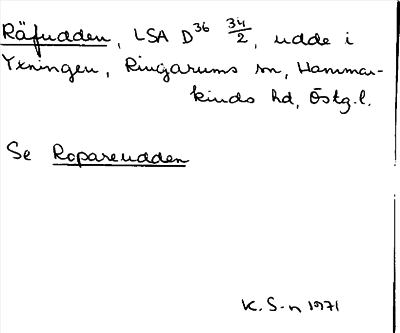 Räfudden, LSA D36 34/2, udde i
Yxningen, Ringarums sn, Hammar-
kinds hd, Östg.l.
Se Ropareudden
K. S-n 1971